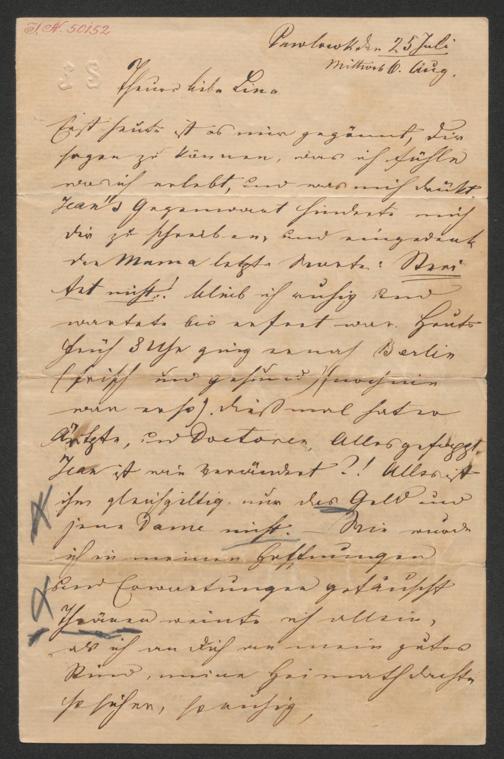 I. N. 50152
Pawlowsk den 25 Juli
Mittwoch 6. Aug.
Theure liebe Lina
Erst heute ist es mir gegönnt, Dir
sagen zu können, was ich fühle
was ich erlebt, und was mich drückt.
Jean's Gegenwart hinderte mich
Dir zu schreiben, und eingedenk
der Mama letzte Worte: Strei
tet nicht! blieb ich ruhig und
wartete bis er fort war. Heute
früh 8 Uhr ging er nach Berlin
(frisch und gesund) (noch nie
war er so). Dießmal hat er
Ärzte, und Doctoren, Alles gefoppt.
Jean ist wie verändert?!! Alles ist
ihm gleichgiltig nur das Geld und
jene Dame nicht. – Wie wurde
ich in meinen Hoffnungen
und Erwartungen getäuscht
Thränen weinte ich allein,
als ich an Dich an mein gutes
Kind, meine Heimath dachte
so sicher, so ruhig,